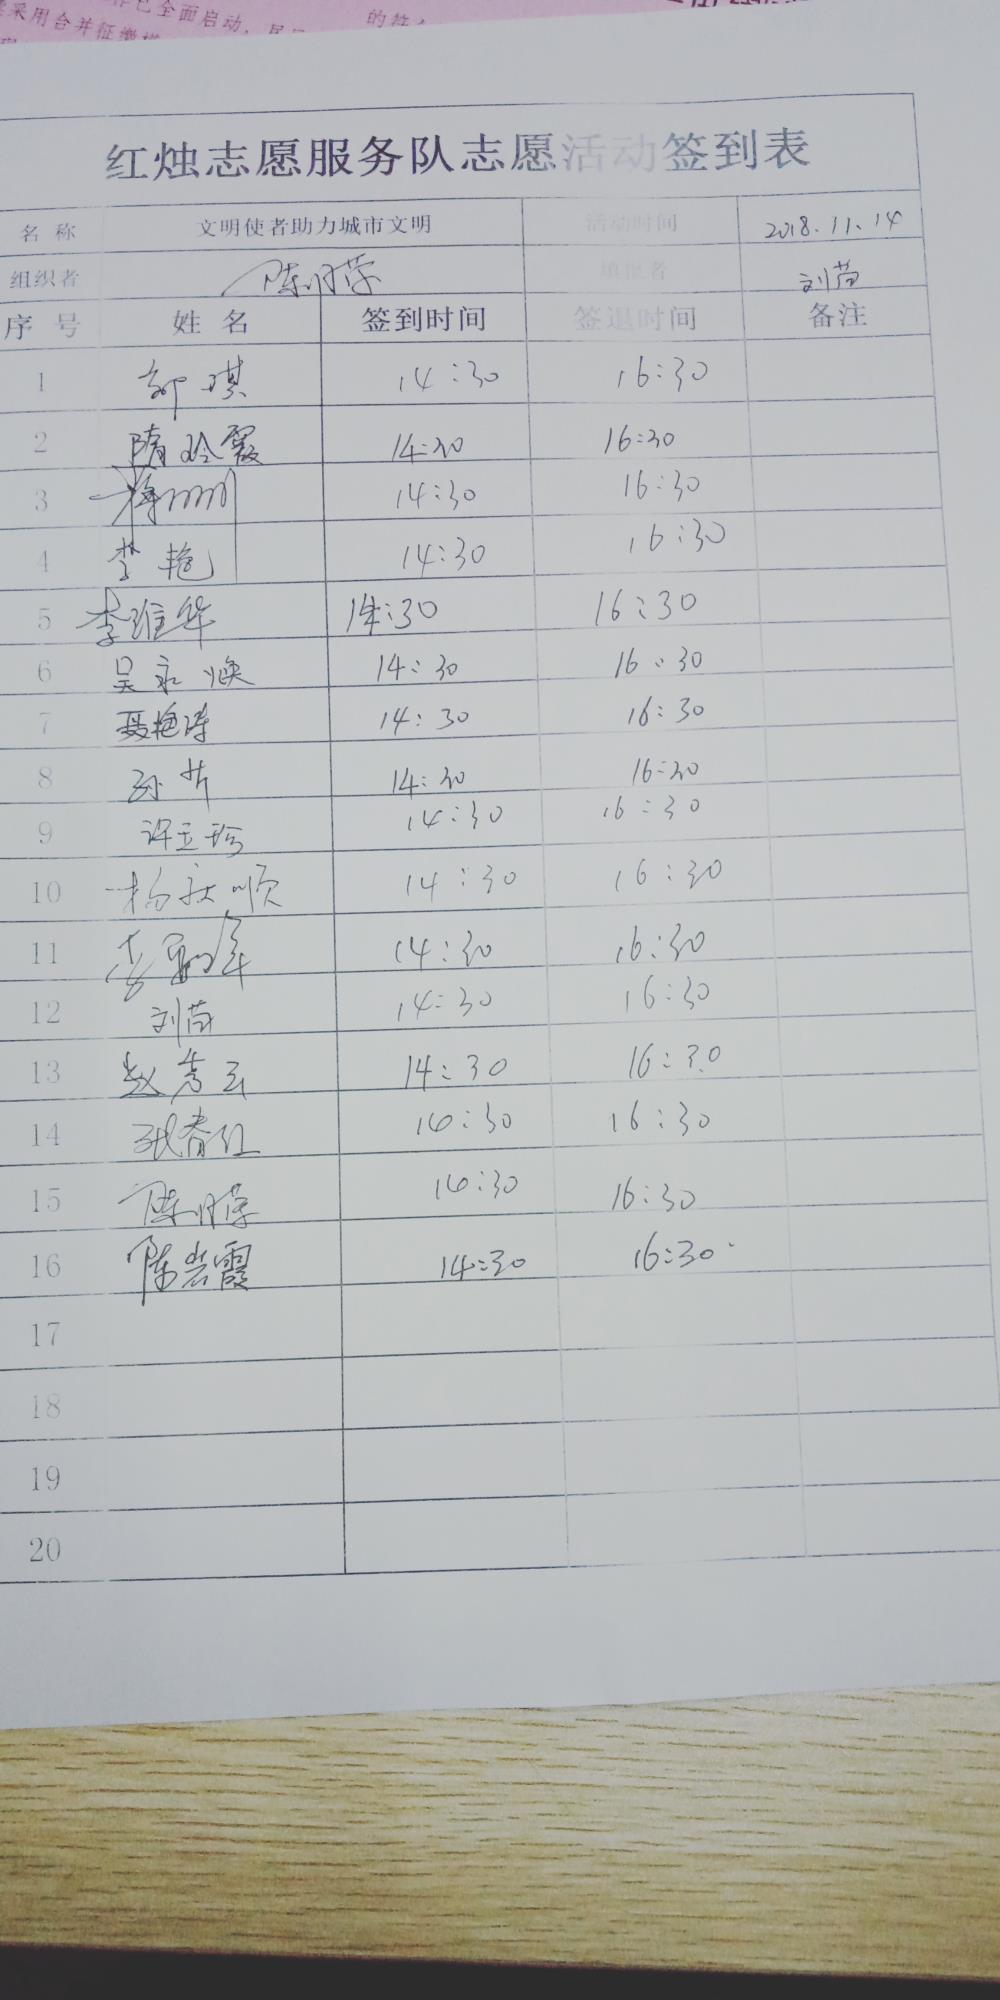 作已全面启动,
采用合并征缴
的符
红烛志愿服务队志愿活动签到表
名称 文明使者助力城市文明 活动时间 2018.11.14
组织者 填报者 刘苗
序号 姓名 签到时间 签退时间 备注
1 郭琪 14:30 16:30
2 隋玲霞 14:30 16:30
3 14:30 16:30
4 李艳 14:30 16:30
5 李维华 14:30 16:30
6 吴永焕 14:30 16:30
7 聂艳涛 14:30 16:30
8 孙芹 14:30 16:30
9 许玉珍 14:30 16:30
10 杨秋顺 14:30 16:30
11 14:30 16:30
12 刘苗 14:30 16:30
13 赵秀云 14:30 16:30
14 张春红 14:30 16:30
15 14:30 16:30
16 陈岩霞 14:30 16:30
17
18
19
20